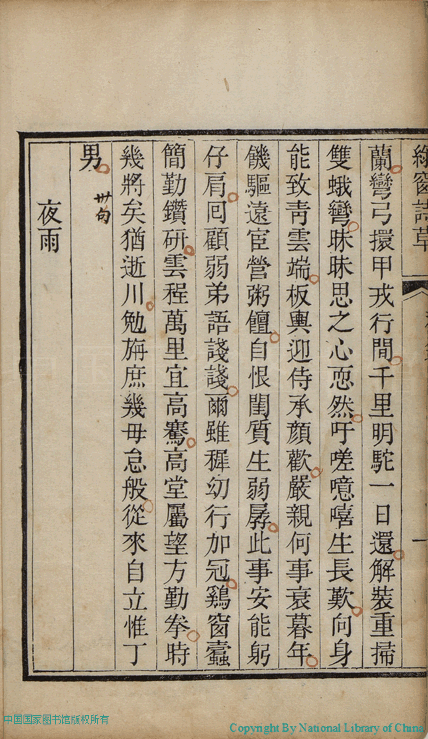 綠窗詩草
一
蘭彎弓擐甲戎行間千里明駝一日還解裝重掃
雙蛾彎昧昧思之心恧然吁嗟噫嘻生長歎向身
能致靑雲端板輿迎侍承顏歡嚴親何事衰暮年
饑驅遠宦營粥饘自恨閨質生弱孱此事安能躬
仔肩囘顧弱弟語諓諓爾雖穉幼行加冠鷄窗蠹
簡勤鑽硏雲程萬里宜高騫高堂屬望方勤拳時
幾將矣猶逝川勉旃庶幾毋怠般從來自立惟丁
男
卅句
夜雨
中国国家图书馆版权所有
Copyright By National Library of China